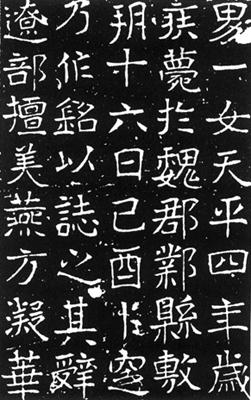 男一女天平四年歲
疾薨於魏郡鄴縣敷
朔十六日己酉窆
乃作銘以誌之其辭
遼部擅美燕方凝華